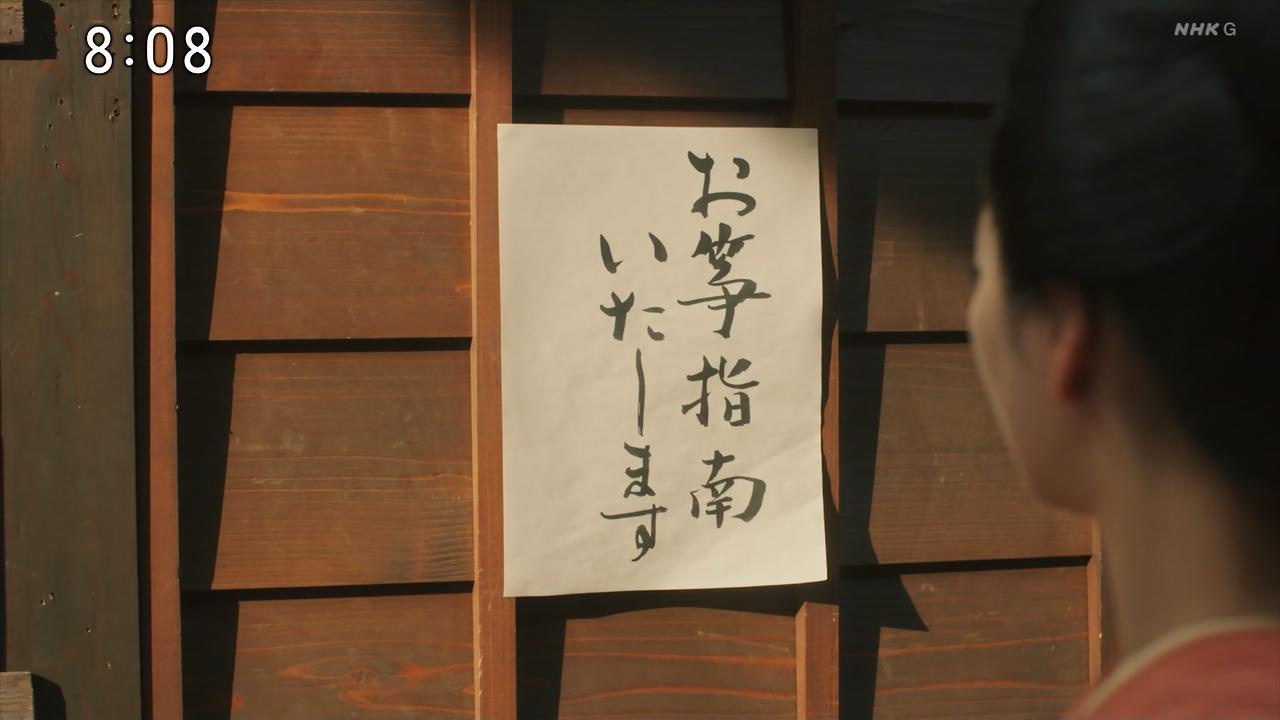 8:08
NHK G
お箏指南
いたします